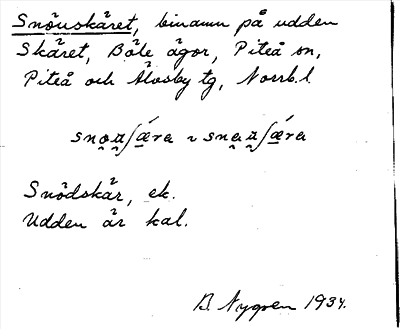 Snöuskäret, binamn på udden
Skäret, Böle ägor, Piteå sn,
Piteå och Älvsby tg, Norrb. l
sno̯u̯ʃǽra ~ sna̯u̯ʃǽra
Snödskär, ek.
Udden är kal.
B. Nygren 1934.